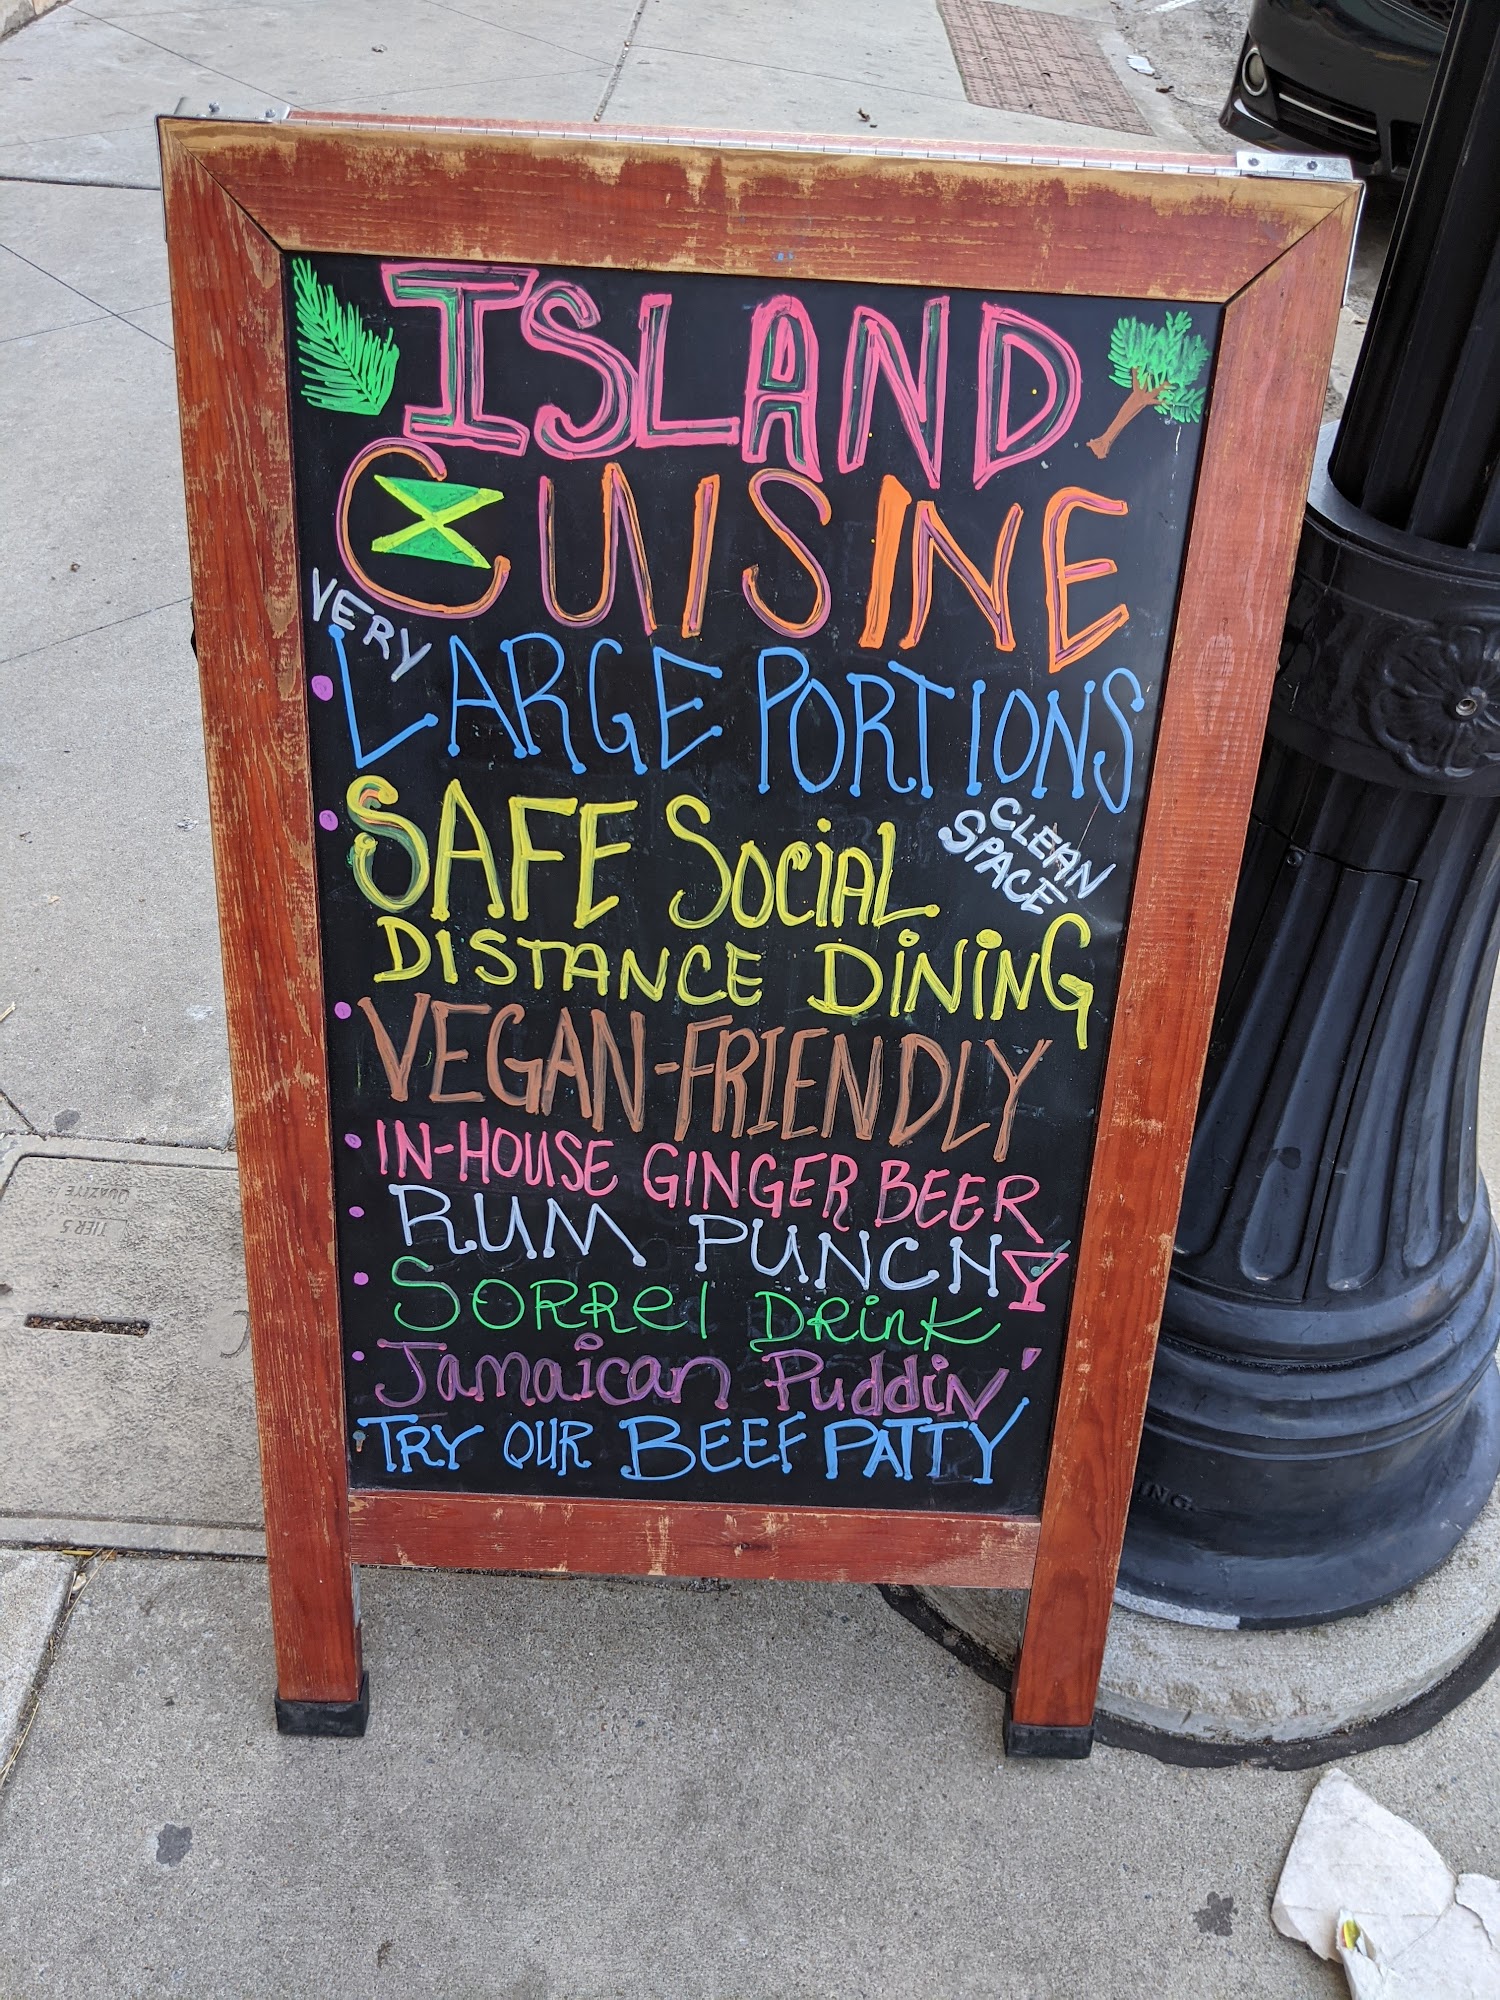 ISLAND
CUISINE
VERY
LARGE PORTIONS
CLEAN
SPACE
SAFE SOCiAL
DISTANCE DiNiNG
VEGAN-FRIENDLY
IN-HOUSE GINGER BEER
RUM PUNCH
SORRel DRink
Jamaican Puddin'
TRY OUR BEEF PATTY
QUAZITE
TIER 5